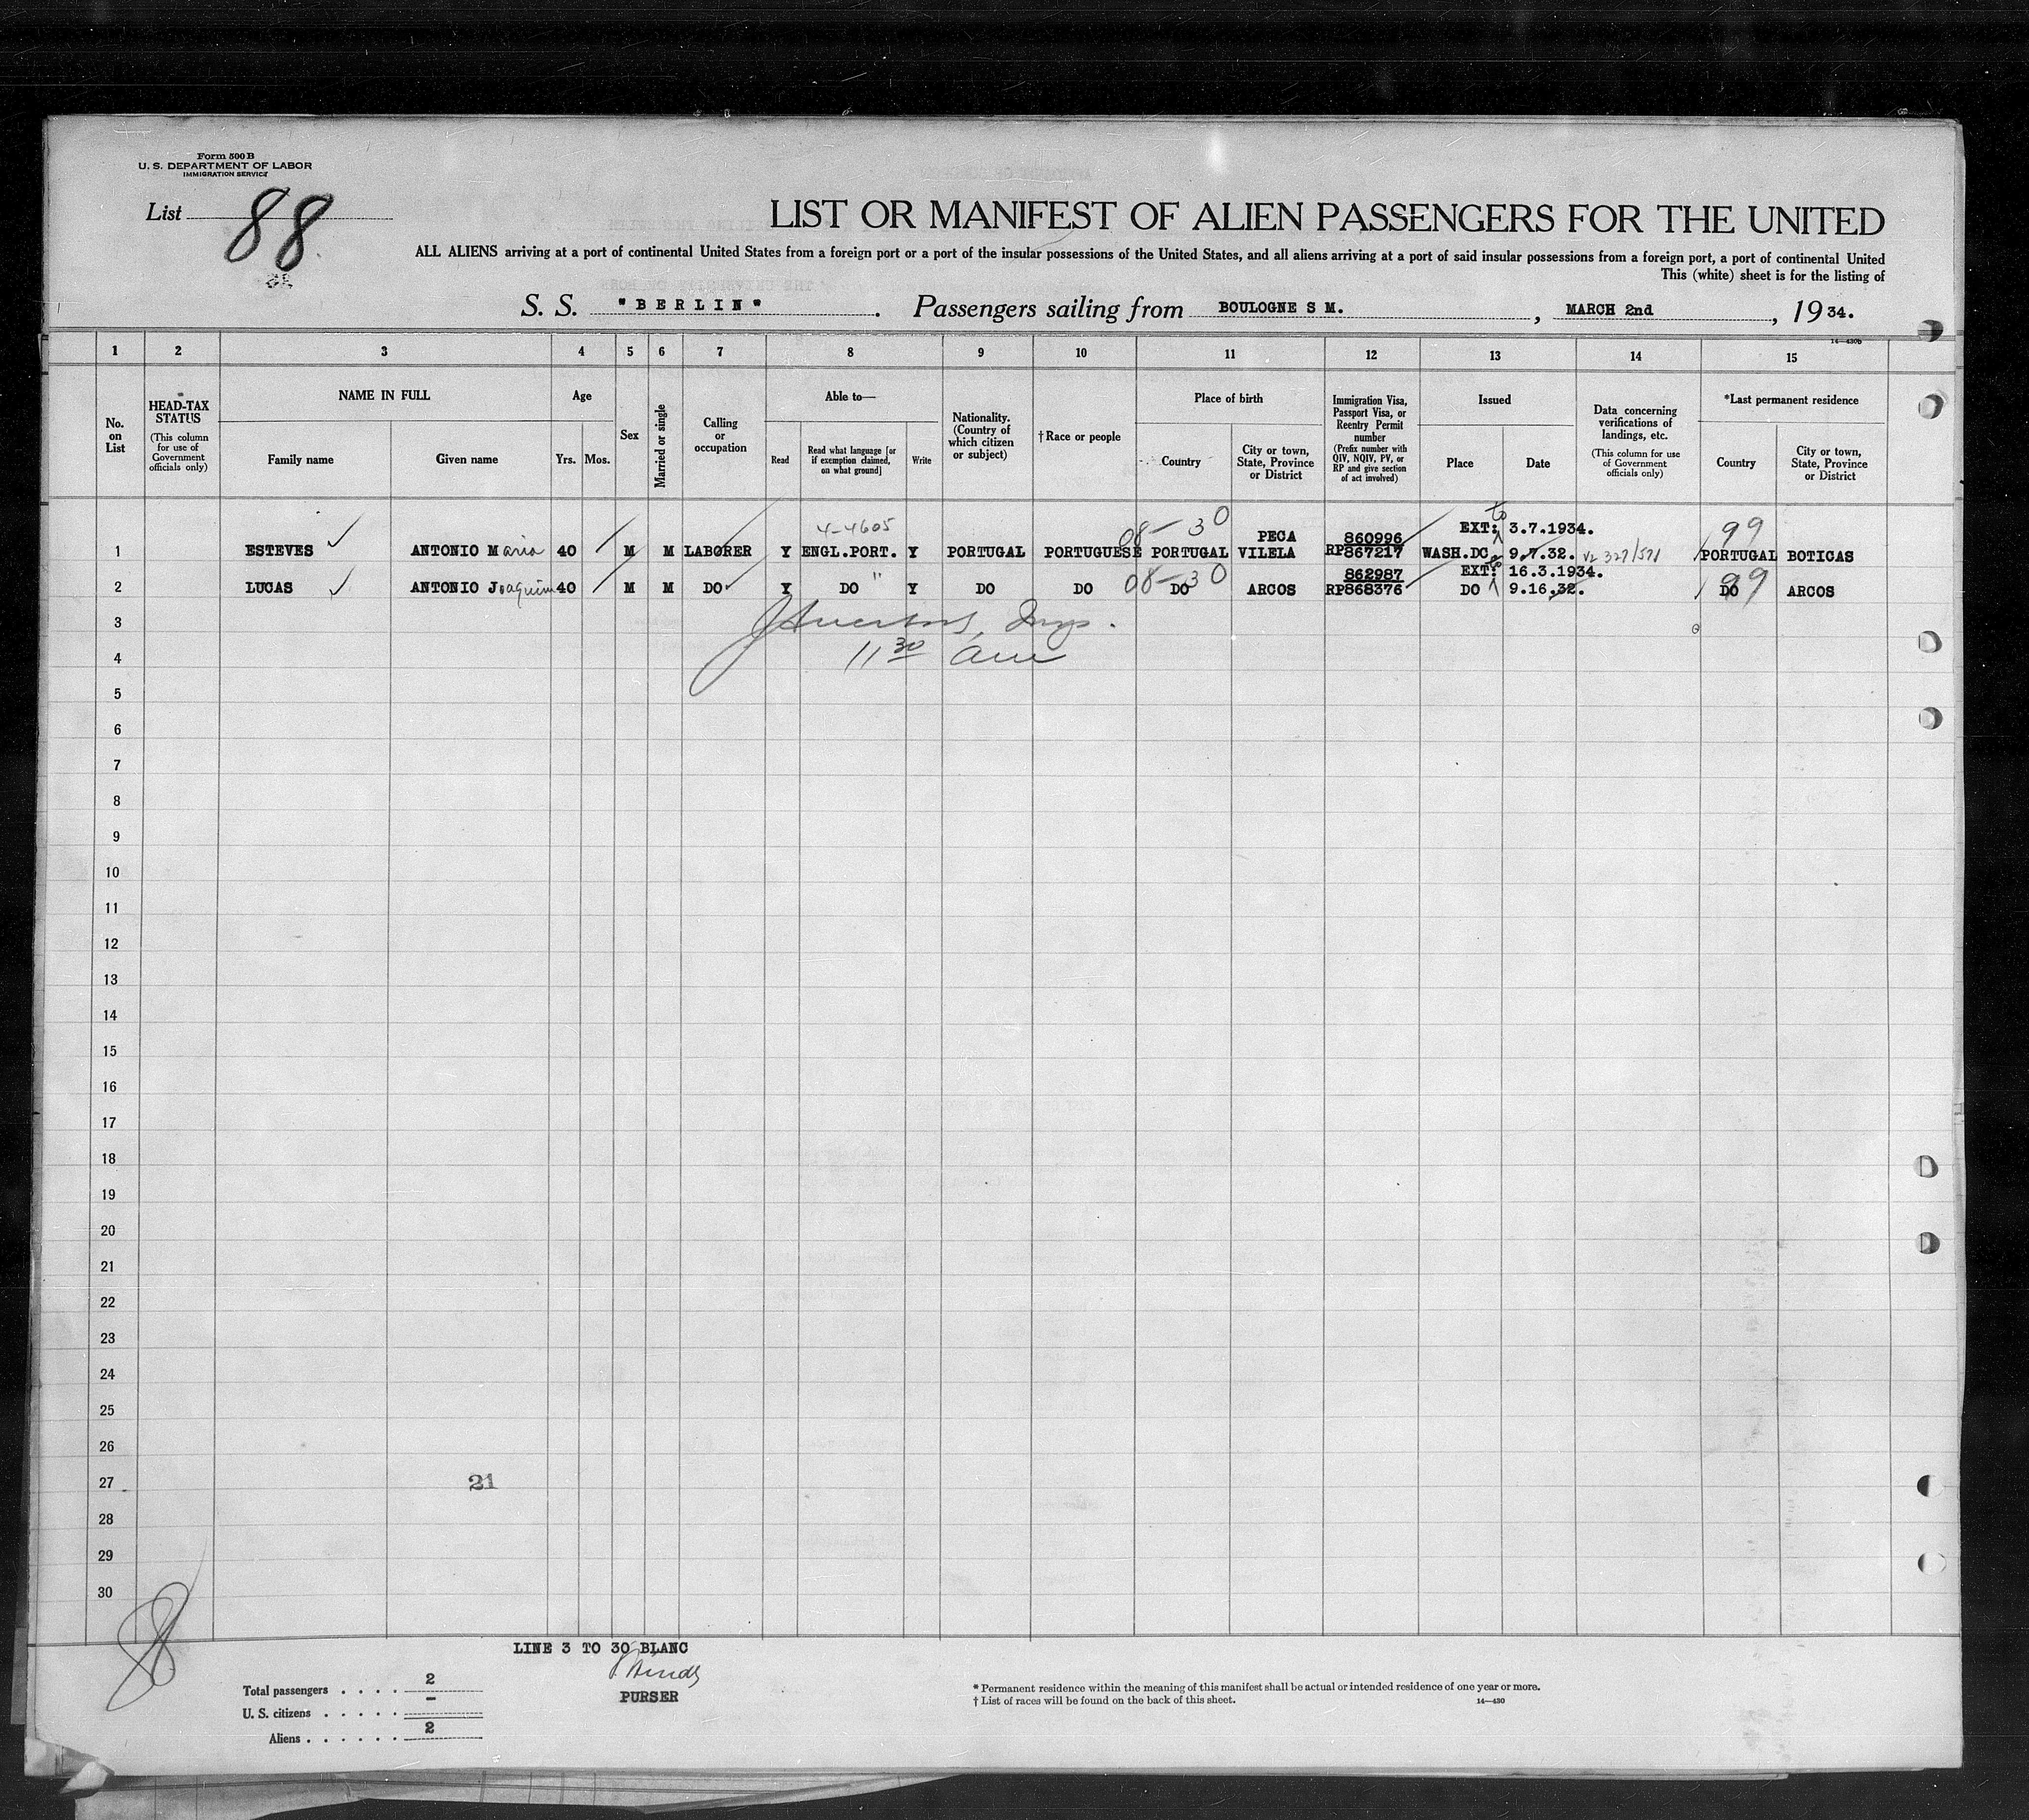 Form 500 B
U. S. DEPARTMENT OF LABOR
IMMIGRATION SERVICE
List 88
LIST OR MANIFEST OF ALIEN PASSENGERS FOR THE UNITED
ALL ALIENS arriving at a port of continental United States from a foreign port or a port of the insular possessions of the United States, and all aliens arriving at a port of said insular possessions from a foreign port, a port of continental United
This (white) sheet is for the listing of
S. S. "BERLIN" . Passengers sailing from BOULOGNE S M. , MARCH 2nd , 1934.
14—430b
1 2 3 4 5 6 7 8 9 10 11 12 13 14 15
No. on List
* HEAD-TAX STATUS (This column for use of Government officials only)
NAME IN FULL
Family name Given name
Age
Yrs. Mos.
Sex
Married or single
Calling or occupation
Able to—
Read Read what language [or if exemption claimed, on what ground] Write
Nationality. (Country of which citizen or subject)
†Race or people
Place of birth
Country City or town, State, Province or District
Immigration Visa, Passport Visa, or Reentry Permit number (Prefix number with QIV, NQIV, PV, or RP and give section of act involved)
Issued
Place Date
Data concerning verifications of landings, etc. (This column for use of Government officials only)
*Last permanent residence
Country City or town, State, Province or District
4-4605 08-30 PECA 860996 EXT: to 3.7.1934. 99
1 ESTEVES ANTONIO Maria 40 M M LABORER Y ENGL.PORT. Y PORTUGAL PORTUGUESE PORTUGAL VILELA RP867217 WASH.DC. 9.7.32. PORTUGAL BOTICAS
08-30 862987 EXT: to 16.3.1934. 99
2 LUCAS ANTONIO Joaquim 40 M M DO Y DO " Y DO DO DO ARCOS RP868376 DO 9.16.32. DO ARCOS
3
11 30 am
4
5
6
7
8
9
10
11
12
13
14
15
16
17
18
19
20
21
22
23
24
25
26
27 21
28
29
30
8
LINE 3 TO 30 BLANC
PURSER
Total passengers . . . . 2
U. S. citizens . . . . . –
Aliens . . . . . . 2
* Permanent residence within the meaning of this manifest shall be actual or intended residence of one year or more.
† List of races will be found on the back of this sheet. 14—430